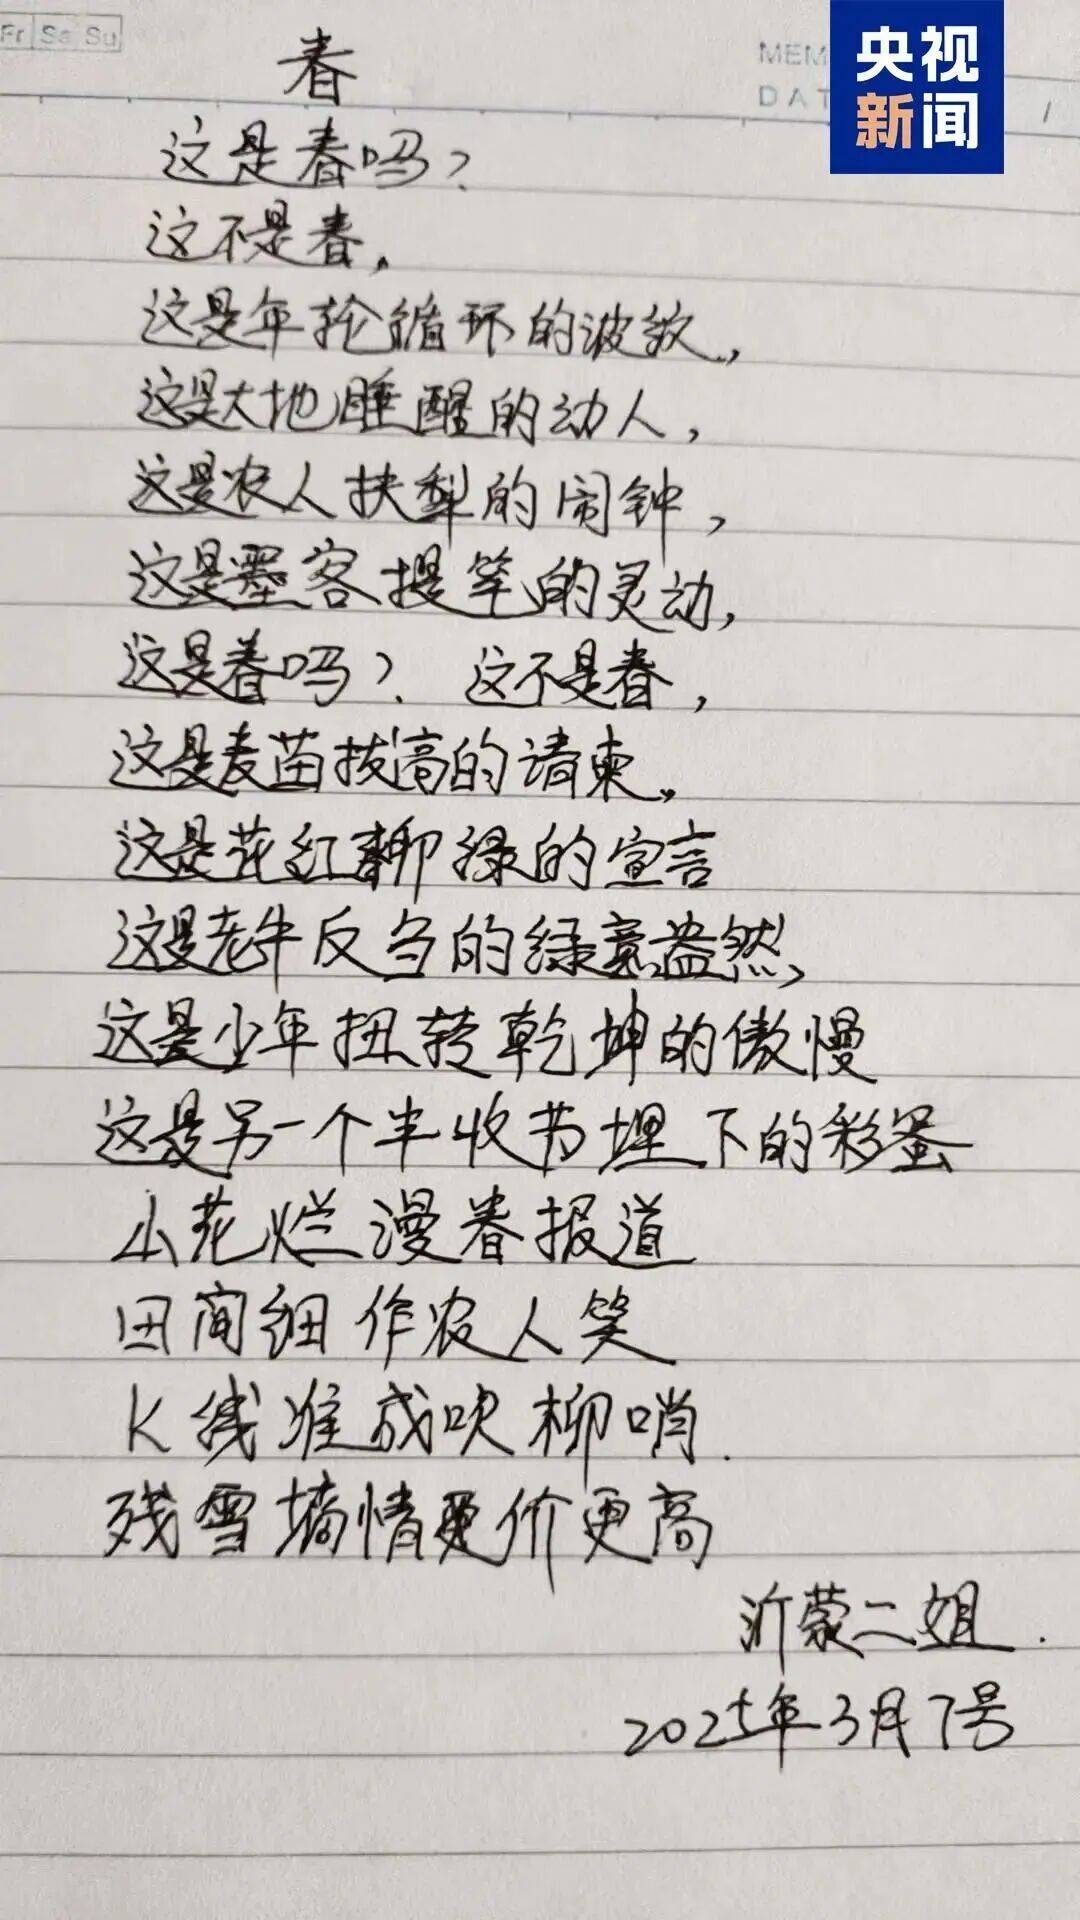 Fr Sa Su
MEM
DAT
央视
新闻
春
这是春吗?
这不是春,
这是年轮循环的波纹,
这是大地睡醒的动人,
这是农人扶犁的闹钟,
这是墨客提笔的灵动,
这是春吗? 这不是春,
这是麦苗拔高的请柬。
这是花红柳绿的宣言
这是老牛反刍的绿意盎然,
这是少年扭转乾坤的傲慢
这是另一个丰收节埋下的彩蛋
小花烂漫春报道
田间细作农人笑
K线准成吹柳哨.
残雪墒情更价更高
沂蒙二姐.
2025年3月7号